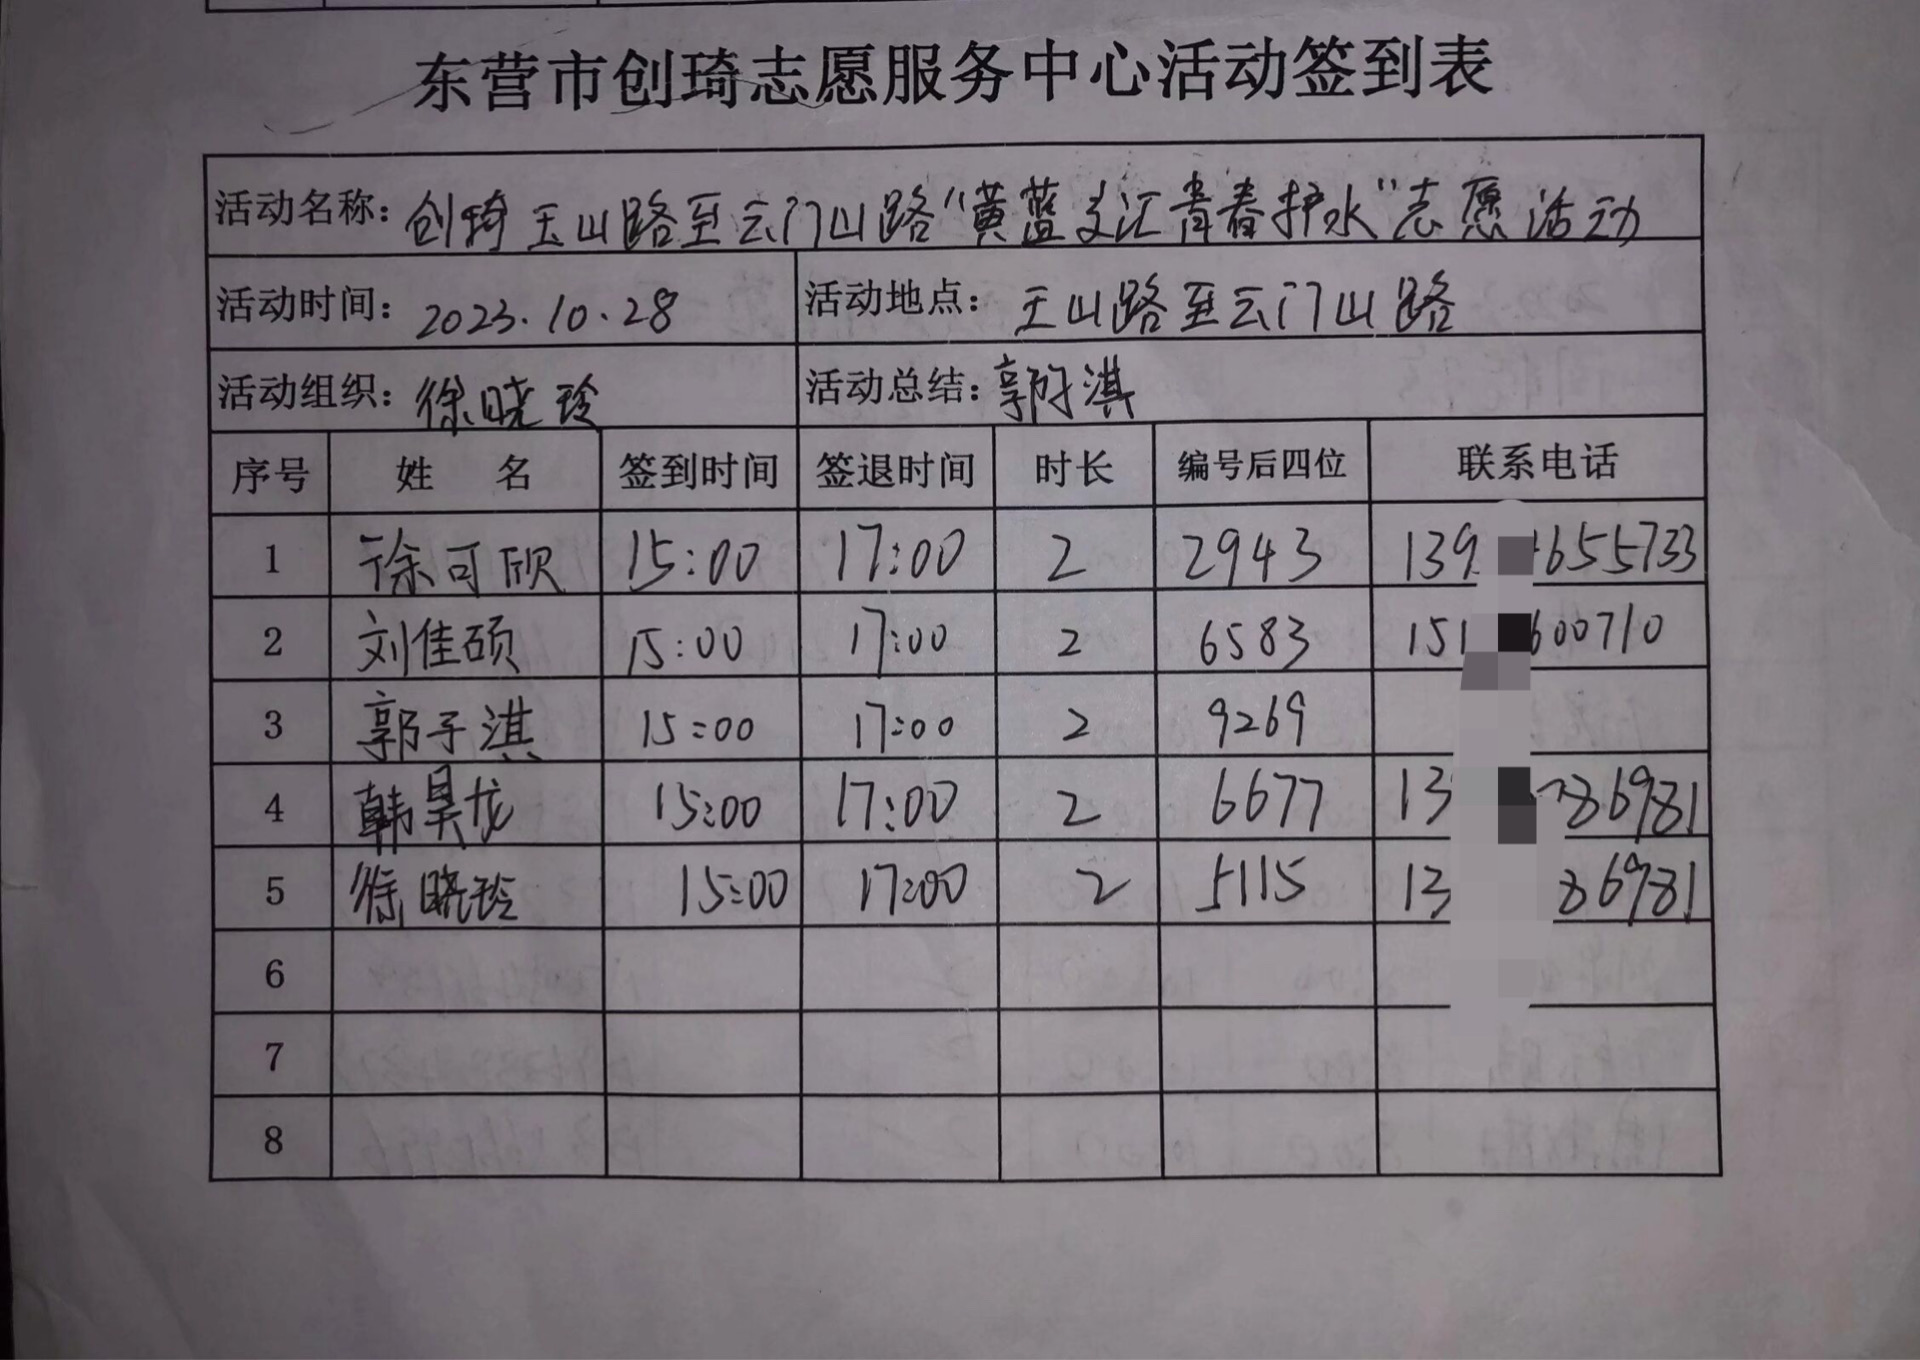 东营市创琦志愿服务中心活动签到表
活动名称：创琦玉山路至云门山路“黄蓝交汇青春护水”志愿活动
活动时间：2023.10.28 活动地点：玉山路至云门山路
活动组织：徐晓玲 活动总结：郭子淇
序号 姓名 签到时间 签退时间 时长 编号后四位 联系电话
1 徐可欣 15:00 17:00 2 2943 139 655733
2 刘佳硕 15:00 17:00 2 6583 151 600710
3 郭子淇 15:00 17:00 2 9269
4 韩昊龙 15:00 17:00 2 6677 13 86981
5 徐晓玲 15:00 17:00 2 5115 13 86981
6
7
8